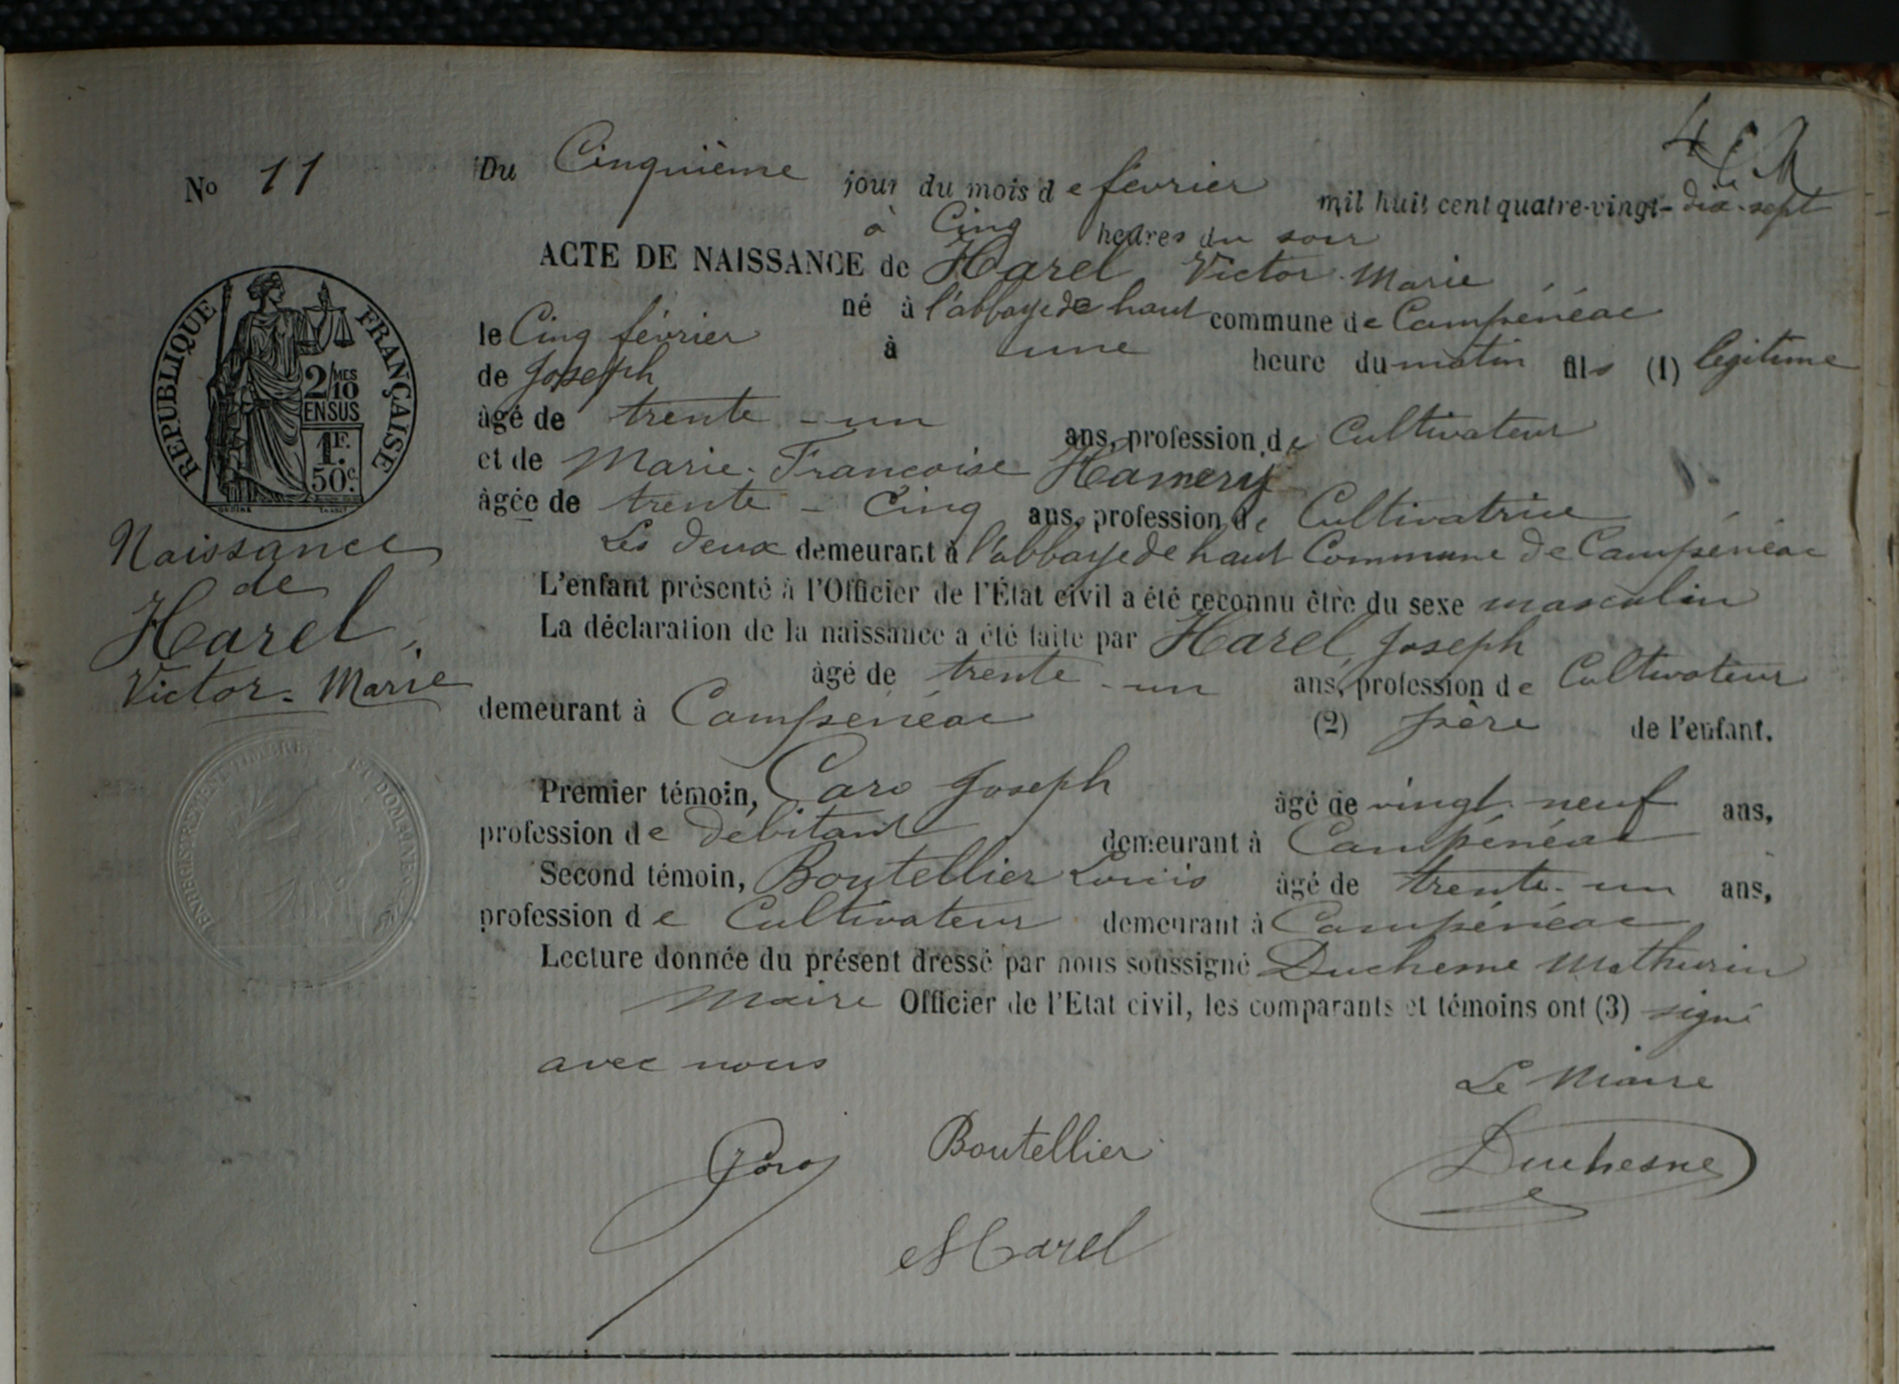 No 11
Du Cinquième jour du mois de février mil huit cent quatre-vingt-dix-sept
à Cinq heures du soir
ACTE DE NAISSANCE de Harel Victor Marie
né à l'abbaye de haut commune de Campénéac
le Cinq février à une heure du matin fils (1) légitime
de Joseph
âgé de trente-un ans, profession de Cultivateur
et de Marie-Francoise Hamery
âgée de trente-Cinq ans, profession de Cultivatrice
Les deux demeurant à l'abbaye de haut Commune de Campénéac
L'enfant présenté à l'Officier de l'État civil a été reconnu être du sexe masculin
La déclaration de la naissance a été faite par Harel, Joseph
âgé de trente-un ans, profession de Cultivateur
demeurant à Campénéac (2) père de l'enfant.
Premier témoin, Caro Joseph âgé de vingt-neuf ans,
profession de débitant demeurant à Campénéac
Second témoin, Boutellier Louis âgé de trente-un ans,
profession de Cultivateur demeurant à Campénéac
Lecture donnée du présent dressé par nous soussigné Duchesne Mathurin
Maire Officier de l'Etat civil, les comparants et témoins ont (3) signé
avec nous
Le Maire
Caro Boutellier Duchesne
Harel
REPUBLIQUE FRANÇAISE
2/MES
10
EN SUS
1F.
50c.
Naissance
de
Harel,
Victor-Marie